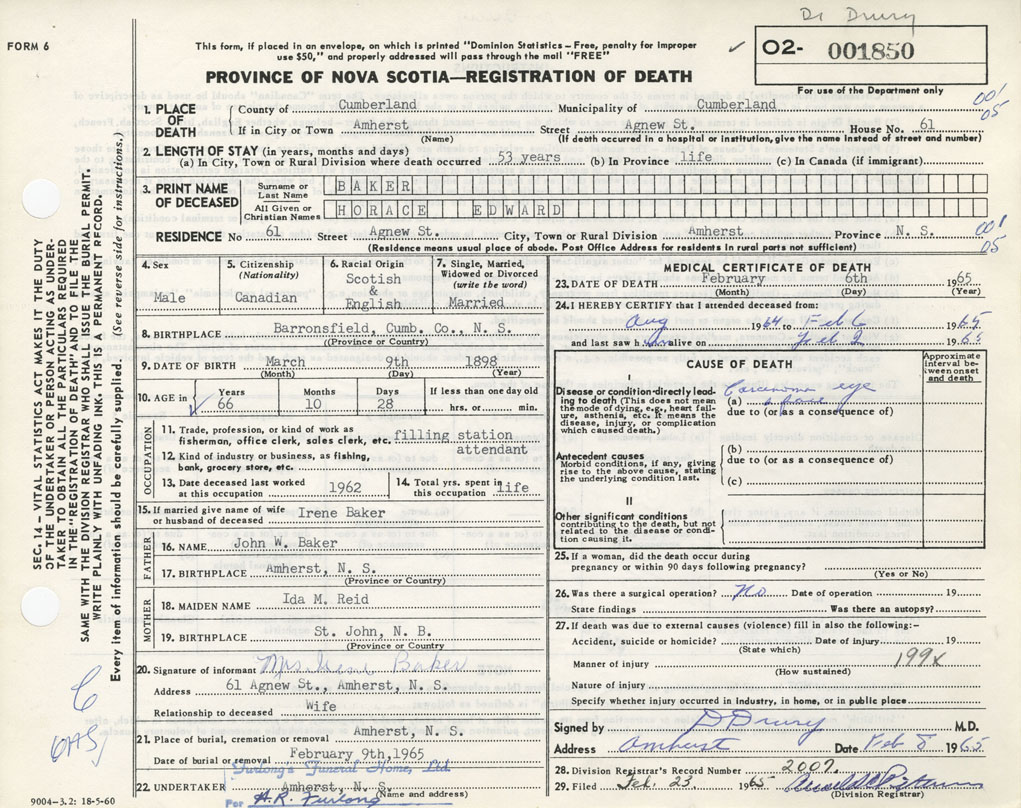 Dr Drury
FORM 6
This form, if placed in an envelope, on which is printed "Dominion Statistics – Free, penalty for improper
use $50," and properly addressed will pass through the mail "FREE"
✓ 02- 001850
PROVINCE OF NOVA SCOTIA—REGISTRATION OF DEATH
For use of the Department only
1. PLACE OF DEATH
County of Cumberland Municipality of Cumberland 001
05
If in City or Town Amherst Street Agnew St. House No. 61
(Name) (If death occurred in a hospital or institution, give the name instead of street and number)
2. LENGTH OF STAY (in years, months and days)
(a) In City, Town or Rural Division where death occurred 53 years (b) In Province life (c) In Canada (if immigrant)
3. PRINT NAME OF DECEASED
Surname or Last Name BAKER
All Given or Christian Names HORACE EDWARD
RESIDENCE No 61 Street Agnew St. City, Town or Rural Division Amherst Province N. S. 001
05
(Residence means usual place of abode. Post Office Address for residents in rural parts not sufficient)
4. Sex
Male
5. Citizenship
(Nationality)
Canadian
6. Racial Origin
Scotish
&
English
7. Single, Married,
Widowed or Divorced
(write the word)
Married
8. BIRTHPLACE Barronsfield, Cumb. Co., N. S.
(Province or Country)
9. DATE OF BIRTH March 9th 1898
(Month) (Day) (Year)
10. AGE in
Years Months Days If less than one day old
66 10 28 hrs. or min.
OCCUPATION
11. Trade, profession, or kind of work as
fisherman, office clerk, sales clerk, etc. filling station
attendant
12. Kind of industry or business, as fishing,
bank, grocery store, etc.
13. Date deceased last worked
at this occupation 1962
14. Total yrs. spent in
this occupation life
15. If married give name of wife
or husband of deceased Irene Baker
FATHER
16. NAME John W. Baker
17. BIRTHPLACE Amherst, N. S.
(Province or Country)
MOTHER
18. MAIDEN NAME Ida M. Reid
19. BIRTHPLACE St. John, N. B.
(Province or Country)
20. Signature of informant Mrs. Irene Baker
Address 61 Agnew St., Amherst, N. S.
Relationship to deceased Wife
21. Place of burial, cremation or removal Amherst, N. S.
Date of burial or removal February 9th, 1965
Furlong's Funeral Home, Ltd.
22. UNDERTAKER Amherst, N. S.
(Name and address)
For A.R. Furlong
MEDICAL CERTIFICATE OF DEATH
23. DATE OF DEATH February 6th 1965
(Month) (Day) (Year)
24. I HEREBY CERTIFY that I attended deceased from:
Aug 1964 to Feb 6 1965
and last saw him alive on Feb 2 1965
CAUSE OF DEATH
Approximate
interval be-
tween onset
and death
I
Disease or condition directly lead-
ing to death (This does not mean
the mode of dying, e.g., heart fail-
ure, asthenia, etc. It means the
disease, injury, or complication
which caused death.)
Carcinoma eye
(a)
due to (or as a consequence of)
Antecedent causes
Morbid conditions, if any, giving
rise to the above cause, stating
the underlying condition last.
(b)
due to (or as a consequence of)
(c)
II
Other significant conditions
contributing to the death, but not
related to the disease or condi-
tion causing it.
25. If a woman, did the death occur during
pregnancy or within 90 days following pregnancy?
(Yes or No)
26. Was there a surgical operation? No Date of operation 19
State findings Was there an autopsy?
27. If death was due to external causes (violence) fill in also the following:–
Accident, suicide or homicide? Date of injury 19
(State which)
Manner of injury 199x
(How sustained)
Nature of injury
Specify whether injury occurred in industry, in home, or in public place
Signed by D Drury M.D.
Address Amherst Date Feb 8 1965
28. Division Registrar's Record Number 2007
29. Filed Feb. 23. 1965
(Division Registrar)
SEC. 14 – VITAL STATISTICS ACT MAKES IT THE DUTY
OF THE UNDERTAKER OR PERSON ACTING AS UNDER-
TAKER TO OBTAIN ALL THE PARTICULARS REQUIRED
IN THE "REGISTRATION OF DEATH" AND TO FILE THE
SAME WITH THE DIVISION REGISTRAR WHO SHALL ISSUE THE BURIAL PERMIT.
WRITE PLAINLY WITH UNFADING INK. THIS IS A PERMANENT RECORD.
Every item of information should be carefully supplied. (See reverse side for instructions.)
9004-3.2: 18-5-60